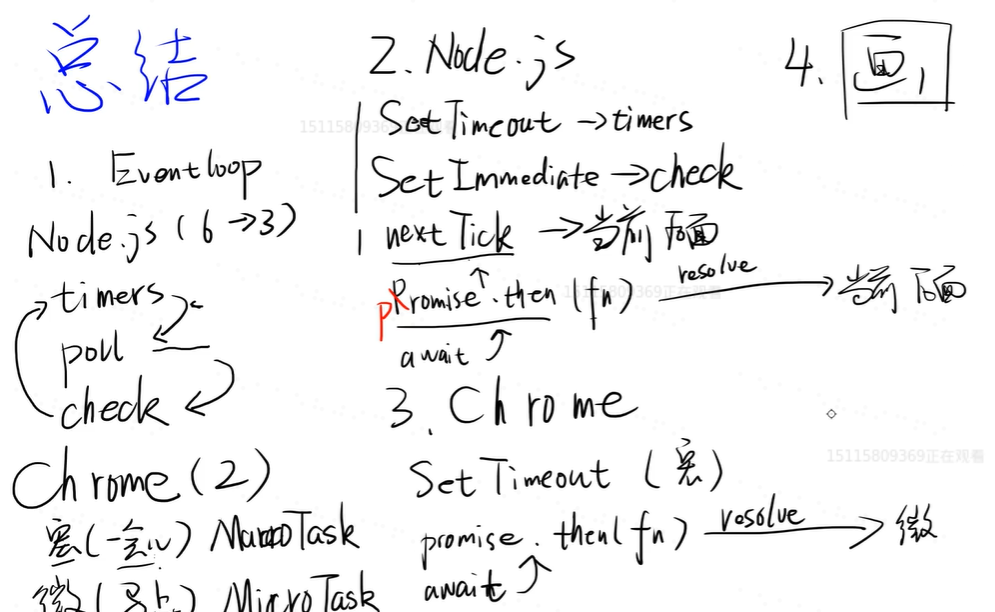 总结
1. Eventloop
Node.js (6→3)
timers
poll
check
Chrome (2)
宏(一会儿) MacroTask
微(马上) MicroTask
2. Node.js
SetTimeout → timers
SetImmediate → check
nextTick → 当前后面
promise.then(fn) resolve → 当前后面
await
3. Chrome
SetTimeout (宏)
promise.then(fn) resolve → 微
await
4. 画,
15115809369正在观看
15115809369正在观看
15115809369正在观看